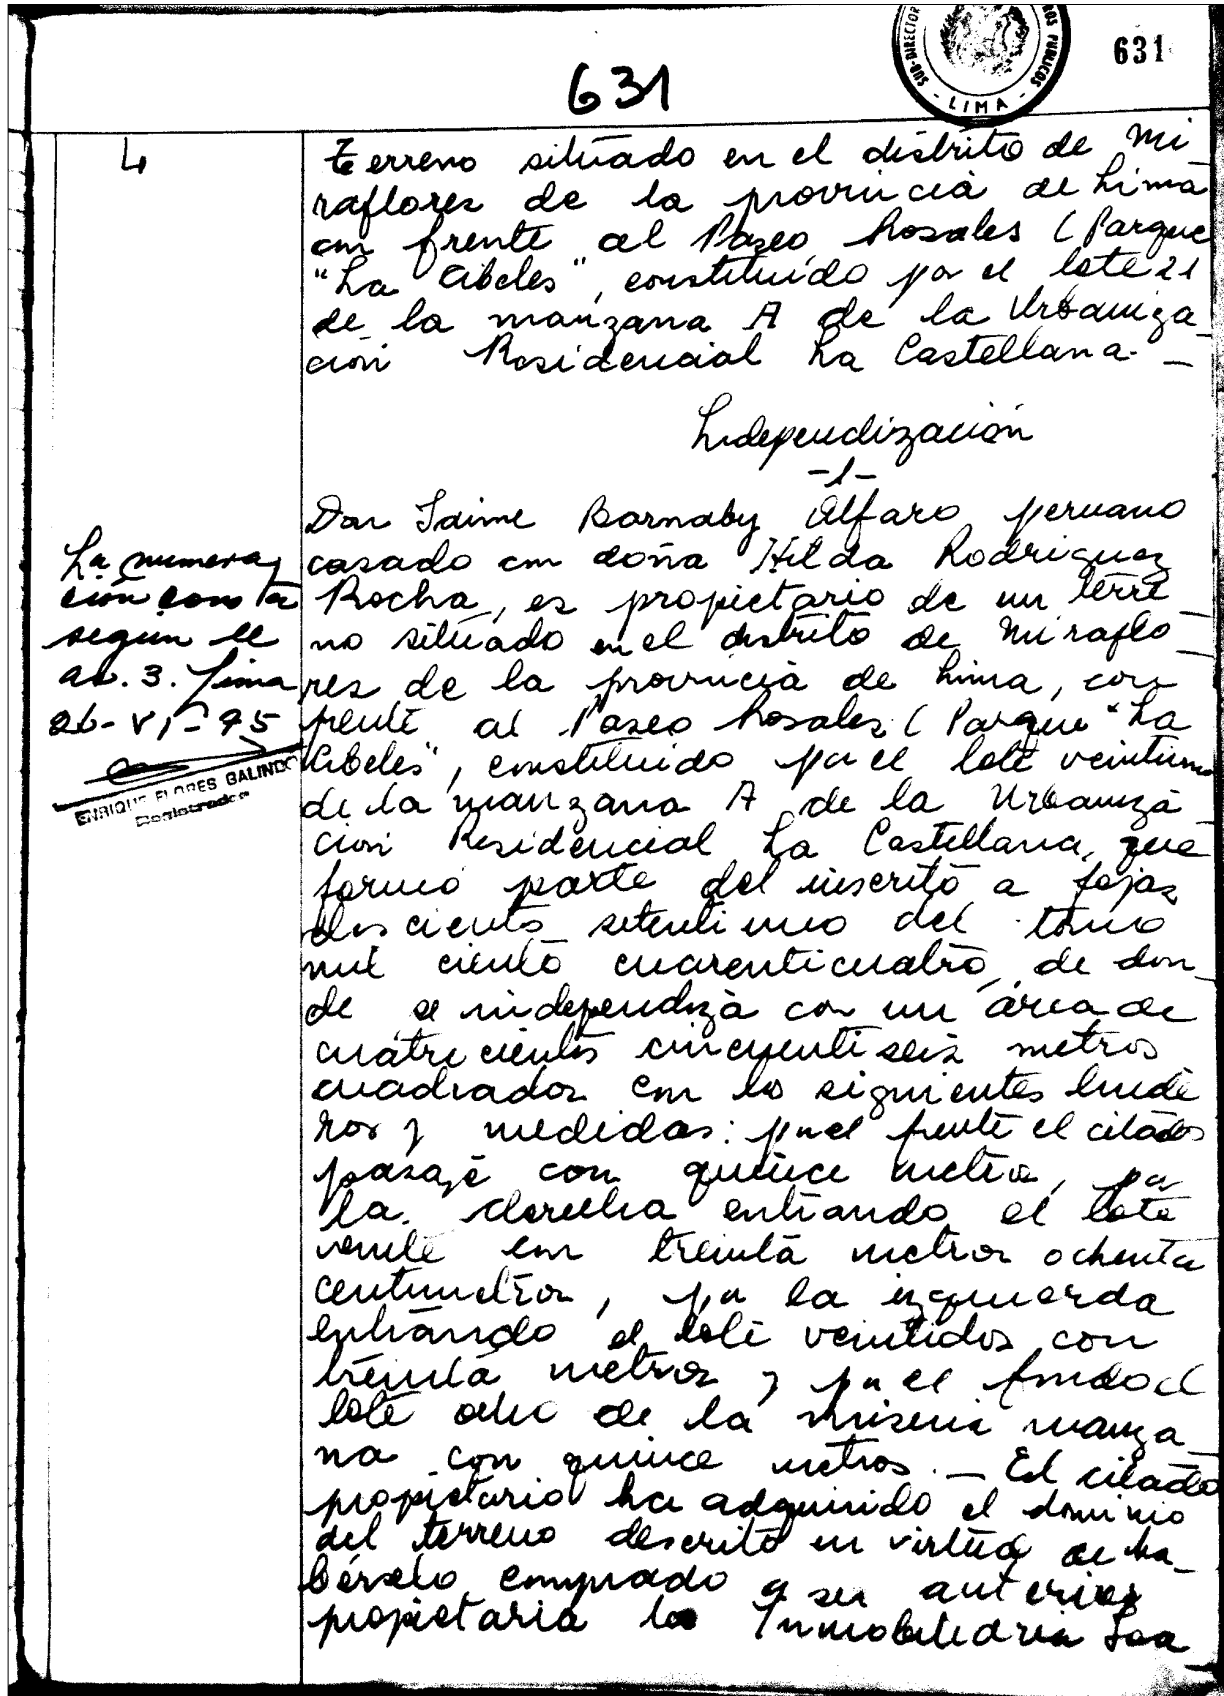 631
SUB-DIRECTOR
ROS PUBLICOS
- LIMA -
631
4
Terreno situado en el distrito de Mi
raflores de la provincia de Lima
con frente al Paseo Rosales (Parque
"La Cibeles", constituído por el lote 21
de la manzana A de la Urbaniza
ción Residencial La Castellana. -
Independización
-1-
Don Jaime Barnaby Alfaro, peruano
casado con doña Hilda Rodriguez
Rocha, es propietario de un terre
no situado en el distrito de Miraflo
res de la provincia de Lima, con
frente al Paseo Rosales (Parque "La
Cibeles", constituído por el lote veintiuno
de la manzana A de la Urbaniza
ción Residencial La Castellana, que
formó parte del inscrito a fojas
doscientos setentiuno del tomo
mil ciento cuarenticuatro, de don
de se independiza con un área de
cuatrocientos cincuentiseis metros
cuadrados con los siguientes linde
ros y medidas: por el frente el citado
pasaje con quince metros, por
la derecha entrando el lote
veinte con treinta metros ochenta
centimetros, por la izquierda
entrando el lote veintidos con
treinta metros y por el fondo el
lote ocho de la misma manza
na con quince metros. - El citado
propietario ha adquirido el dominio
del terreno descrito en virtud de ha
bérselo comprado a su anterior
propietaria la Inmobiliaria
La numera
ción consta
según el
as. 3. Lima
26-VI-75
ENRIQUE FLORES GALINDO
Registrador